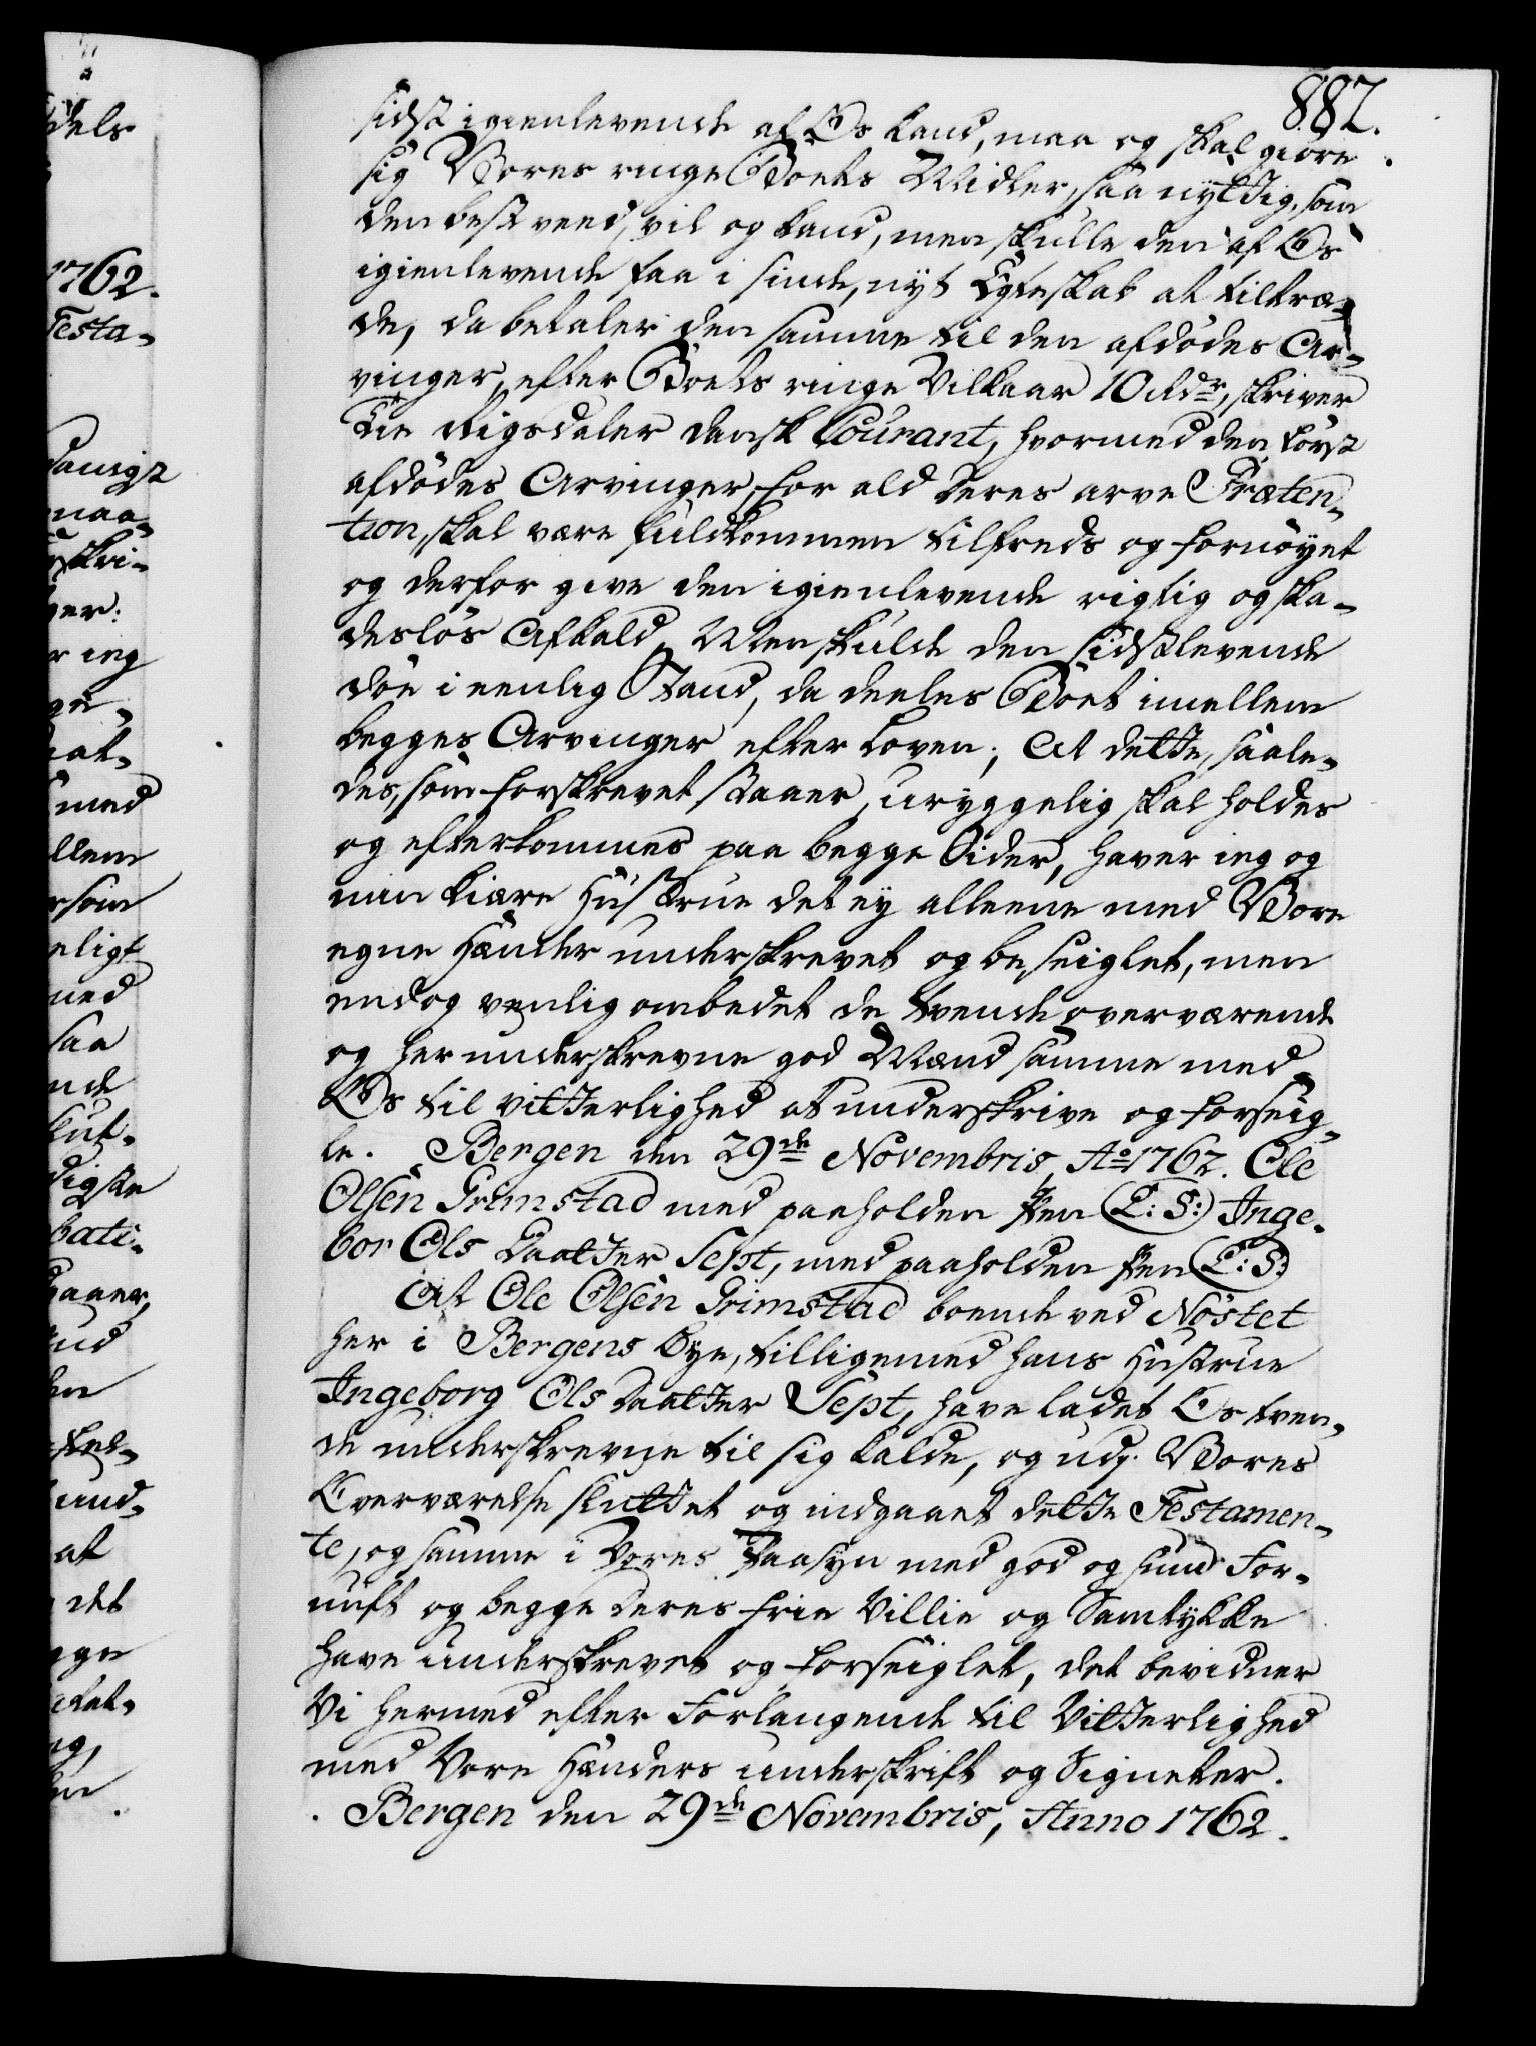 882.
sidst igienlevende af Os kand, maa og skal giøre
sig Vores ringe Boets Midler, saa nyttig, som
den best veed, vil og kand, men skulle den af Os
igienlevende faa i sinde, nyt Egteskab at tiltræ-
de, da betaler den samme til den afdødes Ar-
vinger, efter Boets ringe Vilkaar 10 Rdr, skriver
Tie Rigsdaler dansk Courant, hvormed den først
afdødes Arvinger, for ald deres arve Præten-
tion, skal være fuldkommen tilfreds og fornøyet
og derfor give den igienlevende rigtig og ska-
desløs Afkald, Men skulde den sidstlevende
døe i eenlig Stand, da deeles Boet imellem
begges Arvinger efter Loven; At dette, saale-
des, som forskrevet staaer, uryggelig skal holdes
og efterkommes paa begge Sider, haver ieg og
min kiære Hustrue det ey alleene med Vore
egne Hænder underskrevet og beseiglet, men
endog venlig ombedet de tvende overværende
og her underskrevne god Mænd samme med
Os til vitterlighed at underskrive og forseig-
le. Bergen den 29de Novembris Ao 1762. Ole
Olsen Grimstad med paaholden Pen (L: S:) Inge-
bor Ols Daatter Sept, med paaholden Pen (L: S:)
At Ole Olsen Grimstad boende ved Nøstet
her i Bergens Bye, tilligemed hans Hustrue
Ingeborg Ols Daatter Sept, have ladet Os tven-
de underskrevne til sig kalde, og udj Vores
Overværelse sluttet og indgaaet dette Testamen-
te, og samme i Vores Paasyn med god og sund For-
nuft og begge deres frie Villie og Samtykke
have underskrevet og forseiglet, det bevidner
Vi hermed efter Forlangende til Vitterlighed
med Vore Hænders underskrift og Signeter.
Bergen den 29de Novembris, Anno 1762.